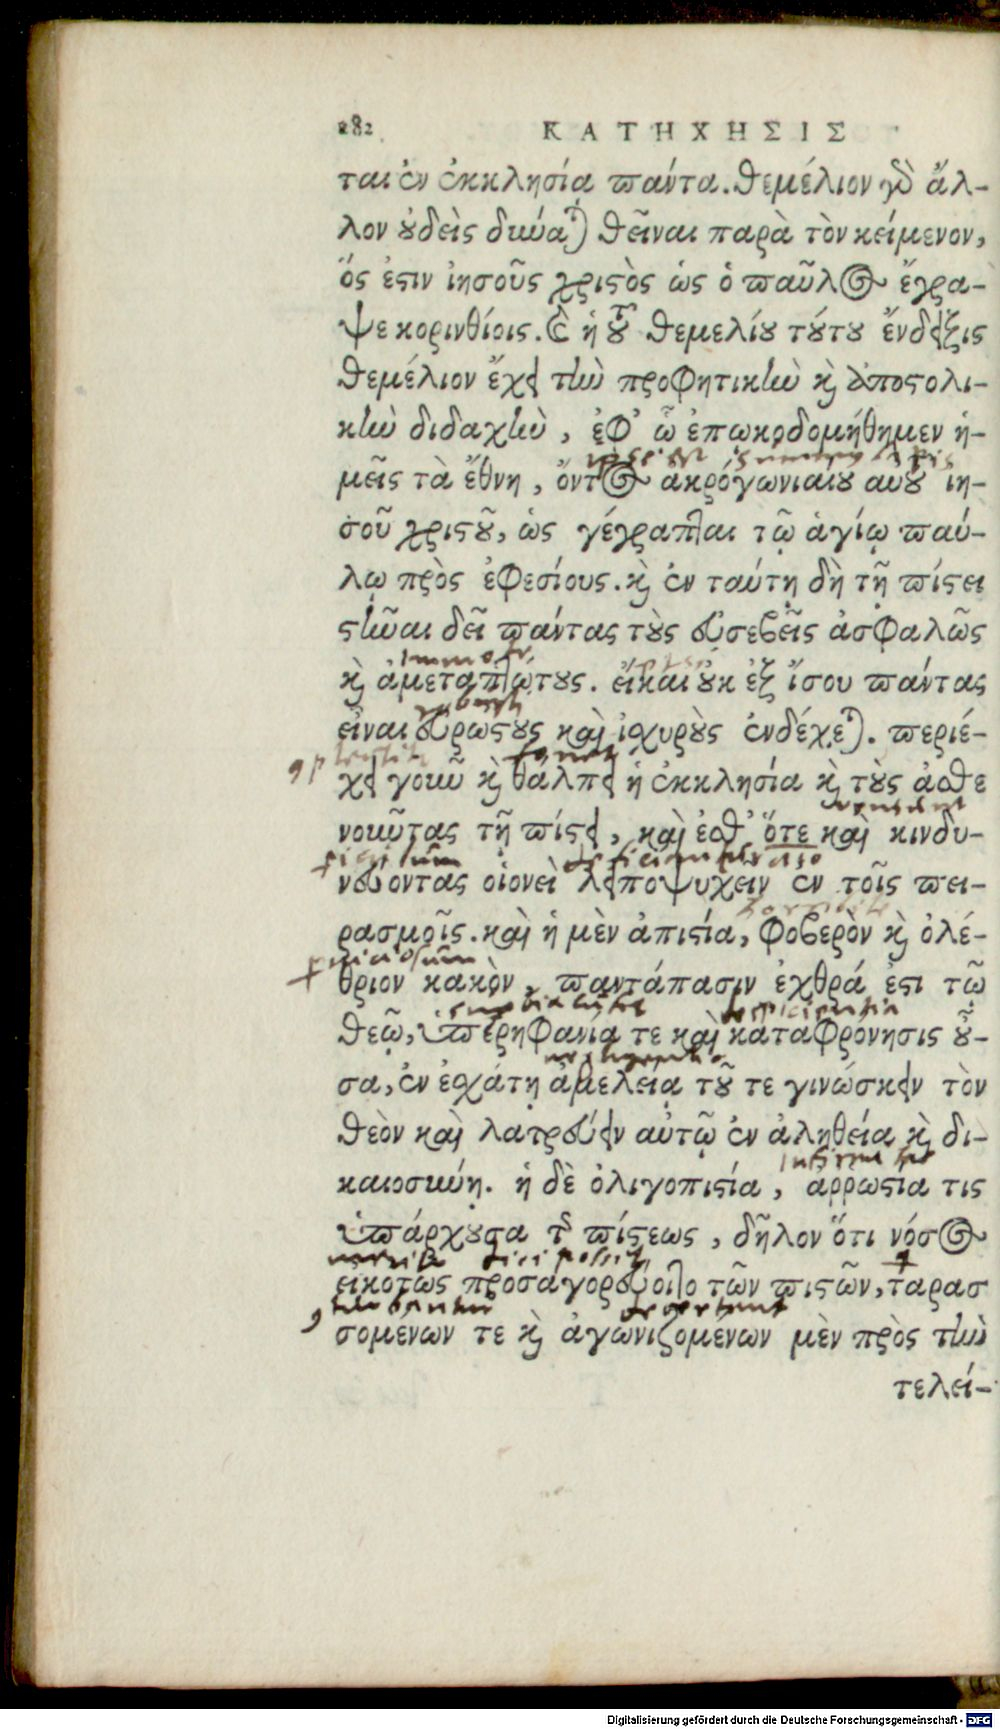 282 ΚΑΤΗΧΗΣΙΣ
ται ἐν ἐκκλησίᾳ πάντα. θεμέλιον γὰρ ἄλ-
λον οὐδεὶς δύναται θεῖναι παρὰ τὸν κείμενον,
ὅς ἐστιν ἰησοῦς χριστὸς ὡς ὁ παῦλος ἔγρα-
ψε κορινθίοις. καὶ ἡ τοῦ θεμελίου τούτου ἔνδειξις
θεμέλιον ἔχει τὴν προφητικὴν καὶ ἀποστολι-
κὴν διδαχὴν, ἐφ’ ᾧ ἐπωκοδομήθημεν ἡ-
μεῖς τὰ ἔθνη, ὄντος ἀκρογωνιαίου αὐτοῦ ἰη-
σοῦ χριστοῦ, ὡς γέγραπται τῷ ἁγίῳ παύ-
λῳ πρὸς ἐφεσίους. καὶ ἐν ταύτῃ δὴ τῇ πίστει
στῆναι δεῖ πάντας τοὺς εὐσεβεῖς ἀσφαλῶς
καὶ ἀμεταπτώτους. εἰ καὶ οὐκ ἐξ ἴσου πάντας
εἶναι εὐρώστους καὶ ἰσχυροὺς ἐνδέχεται. περιέ-
χει γοῦν καὶ θάλπει ἡ ἐκκλησία καὶ τοὺς ἀσθε
νοῦντας τῇ πίστει, καὶ ἐσθ’ ὅτε καὶ κινδυ-
νεύοντας οἱονεὶ λειποψυχεῖν ἐν τοῖς πει-
ρασμοῖς. καὶ ἡ μὲν ἀπιστία, φοβερὸν καὶ ὀλέ-
θριον κακὸν, παντάπασιν ἐχθρά ἐστι τῷ
θεῷ, ὑπερηφανία τε καὶ καταφρόνησις οὖ-
σα, ἐν ἐσχάτῃ ἀμελείᾳ τοῦ τε γινώσκειν τὸν
θεὸν καὶ λατρεύειν αὐτῷ ἐν ἀληθείᾳ καὶ δι-
καιοσύνῃ. ἡ δὲ ὀλιγοπιστία, ἀρρωστία τις
ὑπάρχουσα τῆς πίστεως, δῆλον ὅτι νόσος
εἰκότως προσαγορεύοιτο τῶν πιστῶν, ταρασ
σομένων τε καὶ ἀγωνιζομένων μὲν πρὸς τὴν
τελεί-
Digitalisierung gefördert durch die Deutsche Forschungsgemeinschaft - DFG